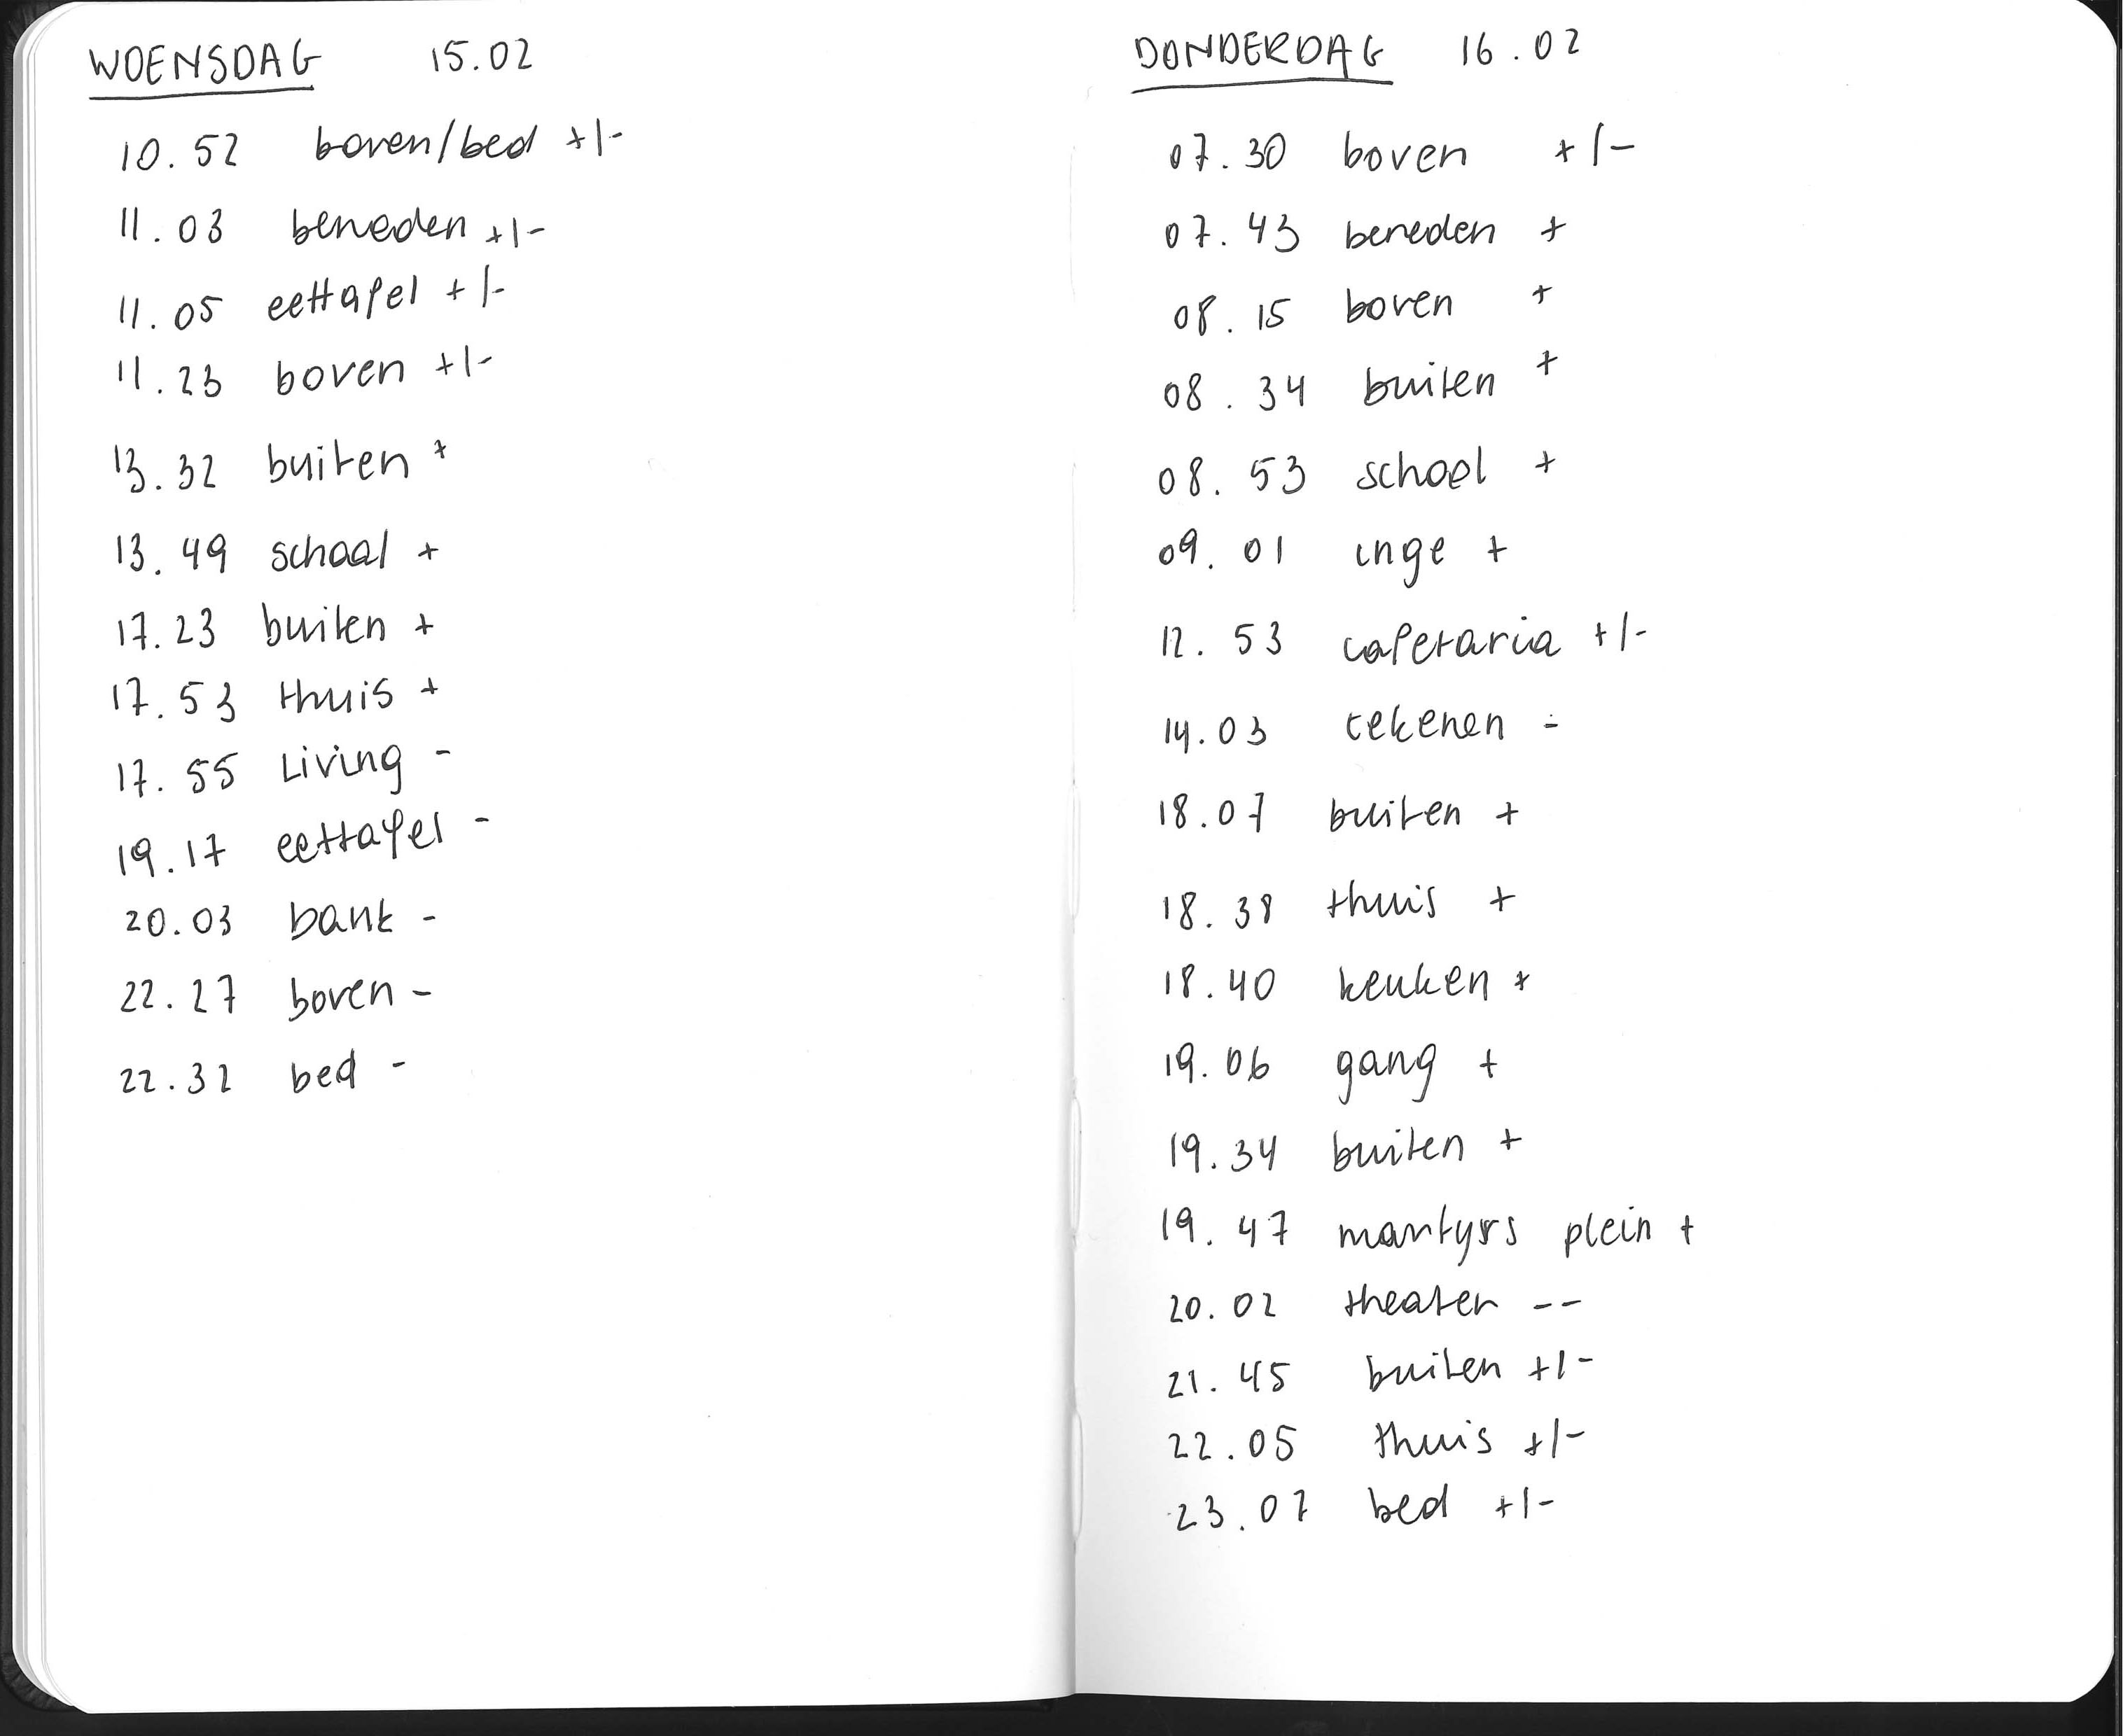 WOENSDAG 15.02
10.52 boven/bed +/-
11.03 beneden +/-
11.05 eettafel +/-
11.23 boven +/-
13.32 buiten +
13.49 school +
17.23 buiten +
17.53 thuis +
17.55 Living -
19.17 eettafel -
20.03 bank -
22.27 boven -
22.32 bed -
DONDERDAG 16.02
07.30 boven +/-
07.43 beneden +
08.15 boven +
08.34 buiten +
08.53 school +
09.01 inge +
12.53 cafetaria +/-
14.03 tekenen -
18.07 buiten +
18.38 thuis +
18.40 keuken +
19.06 gang +
19.34 buiten +
19.47 martyrs plein +
20.02 theater --
21.45 buiten +/-
22.05 thuis +/-
23.07 bed +/-